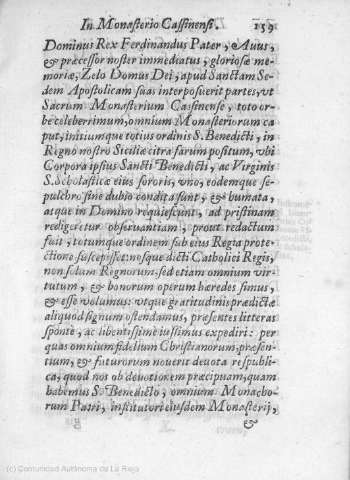 In Monasterio Cassinensi. 159
Dominus Rex Ferdinandus Pater, & Avus,
& præcessor noster immediatus, gloriosæ me-
moriæ, Zelo Domus Dei, apud Sanctam Se-
dem Apostolicam suas interposuerit partes, vt
Sacrum Monasterium Cassinense, toto or-
be celeberrimum, omnium Monasteriorum ca
put, initiumque totius ordinis S. Benedicti, in
Regno nostro Siciliæ citra farum positum, vbi
Corpora ipsius Sancti Benedicti, ac Virginis
S. Scholasticæ eius sororis, vno, eodemque se-
pulchro sine dubio condita sunt, & humata,
atque in Domino requiescunt, ad pristinam
redigeretur observantiam, prout redactum
fuit, totumque ordinem sub eius Regia prote-
ctione suscepisset: nosque dicti Catholici Regis,
non solum Regnorum, sed etiam omnium vir-
tutum, & bonorum operum hæredes simus,
& esse volumus: vtque gratitudinis prædictæ
aliquod signum ostendamus, præsentes litteras
sponte, ac libentissime iussimus expediri: per
quas omnium fidelium Christianorum, præsen-
tium, & futurorum noverit devota respubli-
ca, quod nos ob devotionem præcipuam, quam
habemus S. Benedicto, omnium Monacho-
rum Patri, institutori eiusdem Monasterij,
&
(c) Comunidad Autónoma de La Rioja